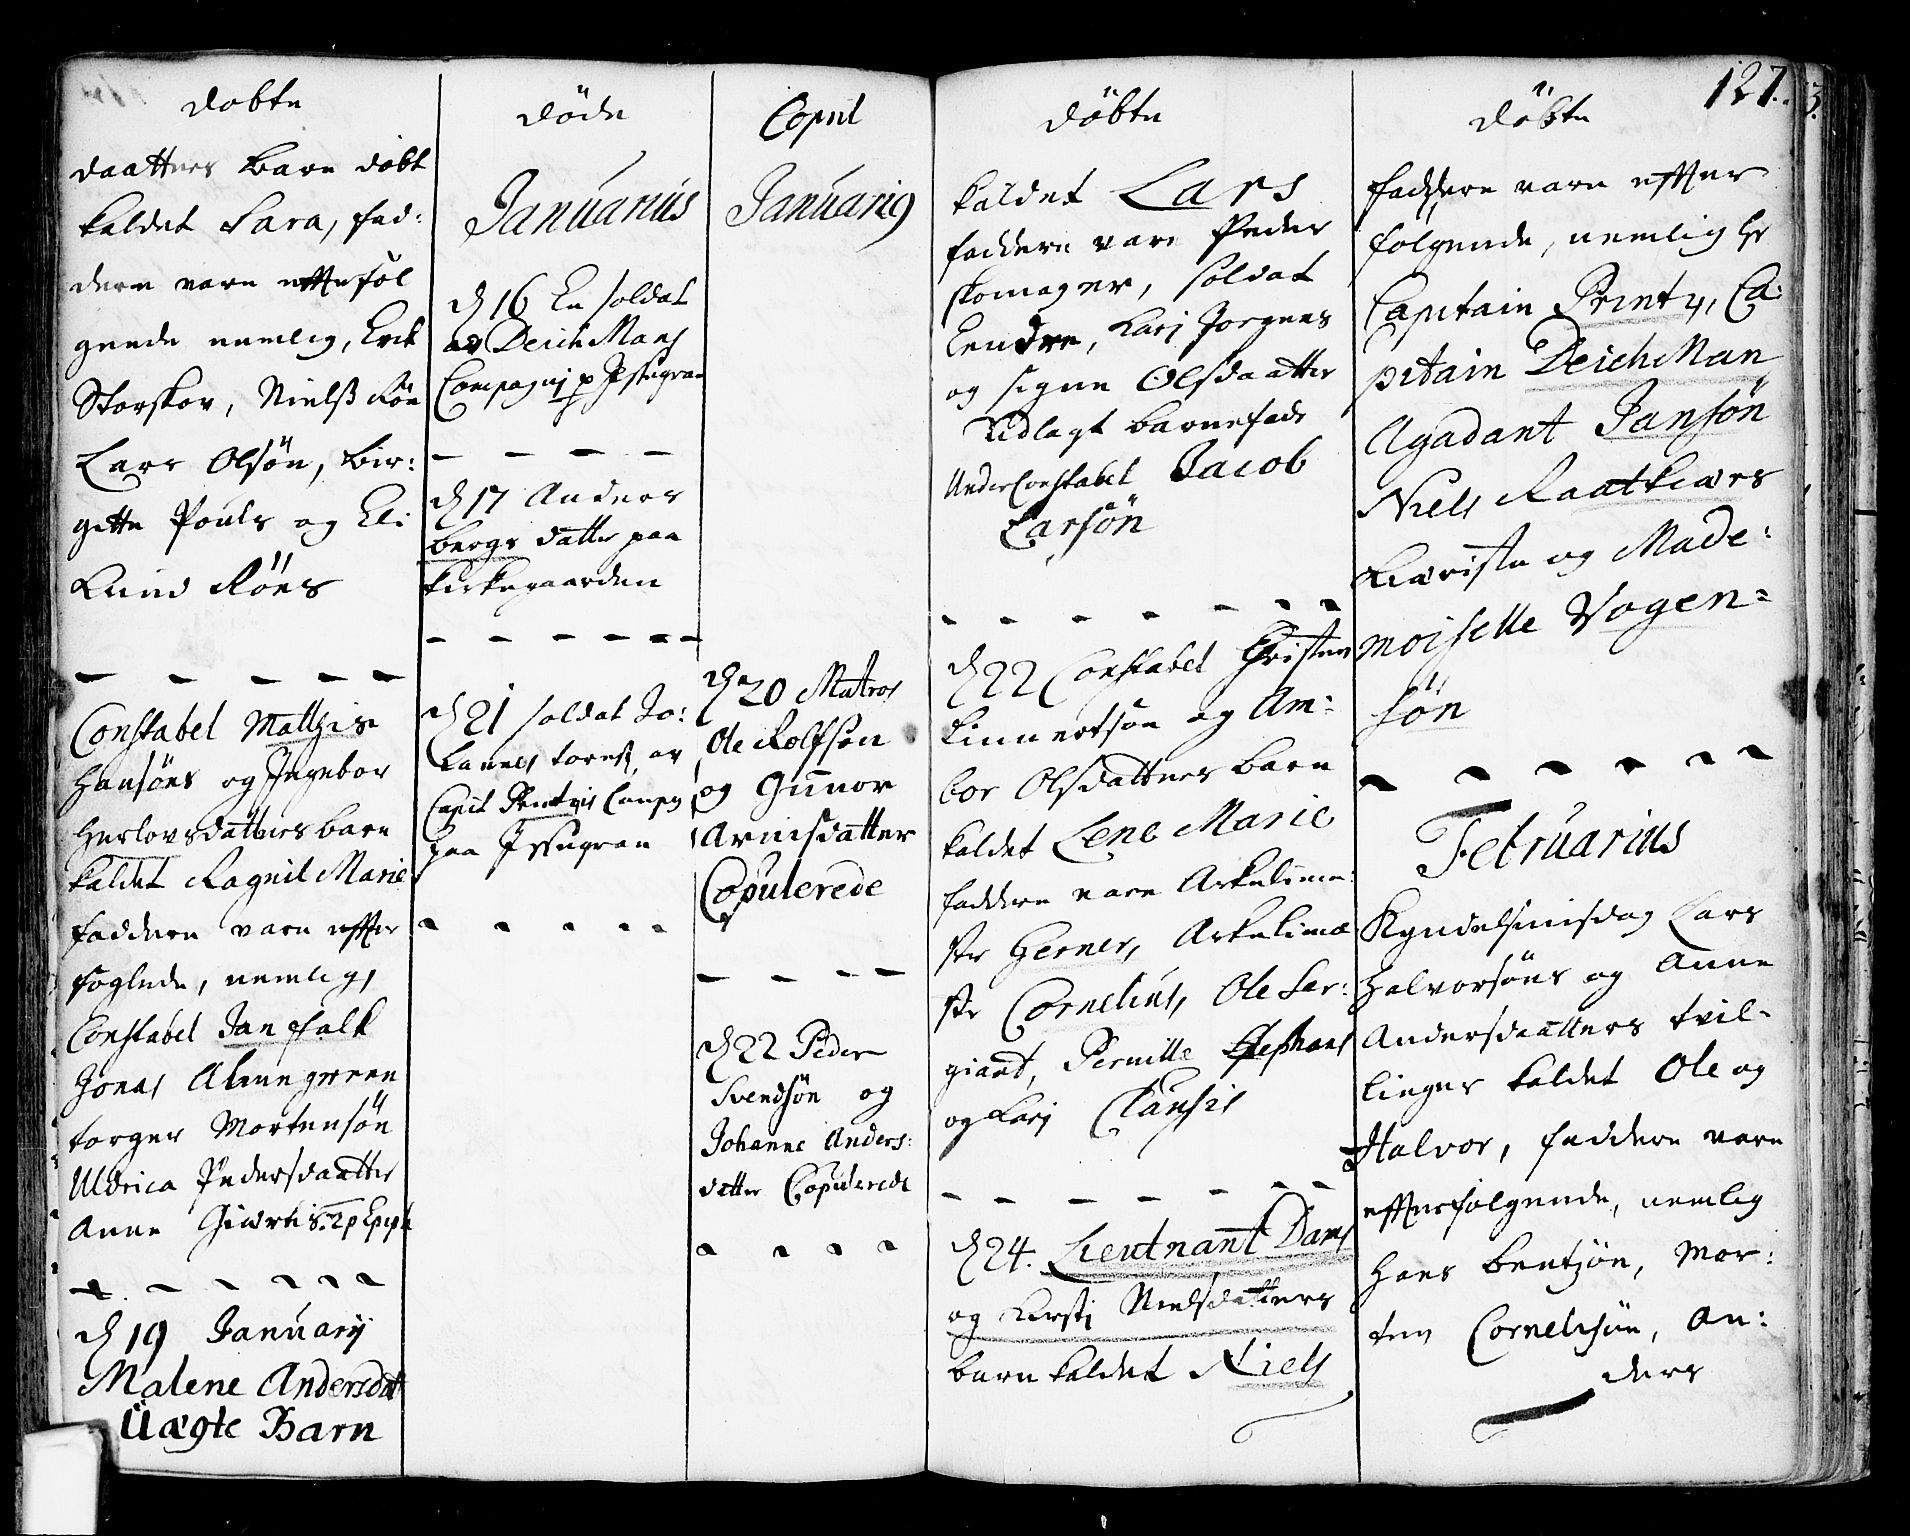 Døbte
daatters Barn døbt
kaldet Sara, fad:
dere vare effterføl
gende nemlig, Erik
Storskov, Nielß Røn
Lars Olsøn, Bir:
gitte Pouls og Eli
Lund Røns
Constabel Matthis
Hansøns og Ingebor
Herlovsdatters barn
kaldet Ragnil Marie
faddere vare effter
føglede, nemlig,
Constabel Jan falk
Jonas Almegreen
torger Mortensøn
Uldrica Pedersdaatter
Anne Giærtis. 2 p Epiph
d 19 Januarij
Malene Andersdat
Uægte Barn
Døde
Januarius
d 16 En soldat
av DeichMans
Compagnj p Issegran
d 17 Anders
bergs datter paa
kirkegaarden
d 21 soldat Jo:
hannes av
Capit Prentzis Compg
paa Issegran
Copul
Januarig
d 20 Matros
Ole Rolfsøn
og Gunnor
Arnisdatter
Copulerede
d 22 Peder
Svendsøn og
Johanne Anders:
datter Copulerede
Døbte
kaldet Lars
faddere vare Peder
skomager, soldat
Endre, Karj Jørgens
og signe Olsdaatter
Udlagt barnefader
UnderConstabel Jacob
Larsøn
d 22 Constabel Christen
Linnertsøn og Am:
bor Olsdatters barn
kaldet Lene Marie
faddere vare Arkelime:
ster Gerner, Arkelimæ
ster Cornelius, Ole Ser:
giant, Pernille Stephans
og Karj Clausis
d 24. Lieutnant Dams
og Kirstj Nielsdatters
barn kaldet Niels
127.
Døbte
faddere vare effter
følgende, nemlig Hr
Capitain Printz, Ca:
pitain DeichMan
Agadant Jansøn
Niels Raatkiærs
Kiæriste og Made:
moiselle Vogen=
søn
Februarius
Kyndelsmisdag Lars
Halvorsøns og Anne
Andersdaatters tvil-
linger kaldet Ole og
Halvor, faddere vare
effterfølgende, nemlig
Hans bentsøn, Mor:
ten Cornelisøn, An:
ders